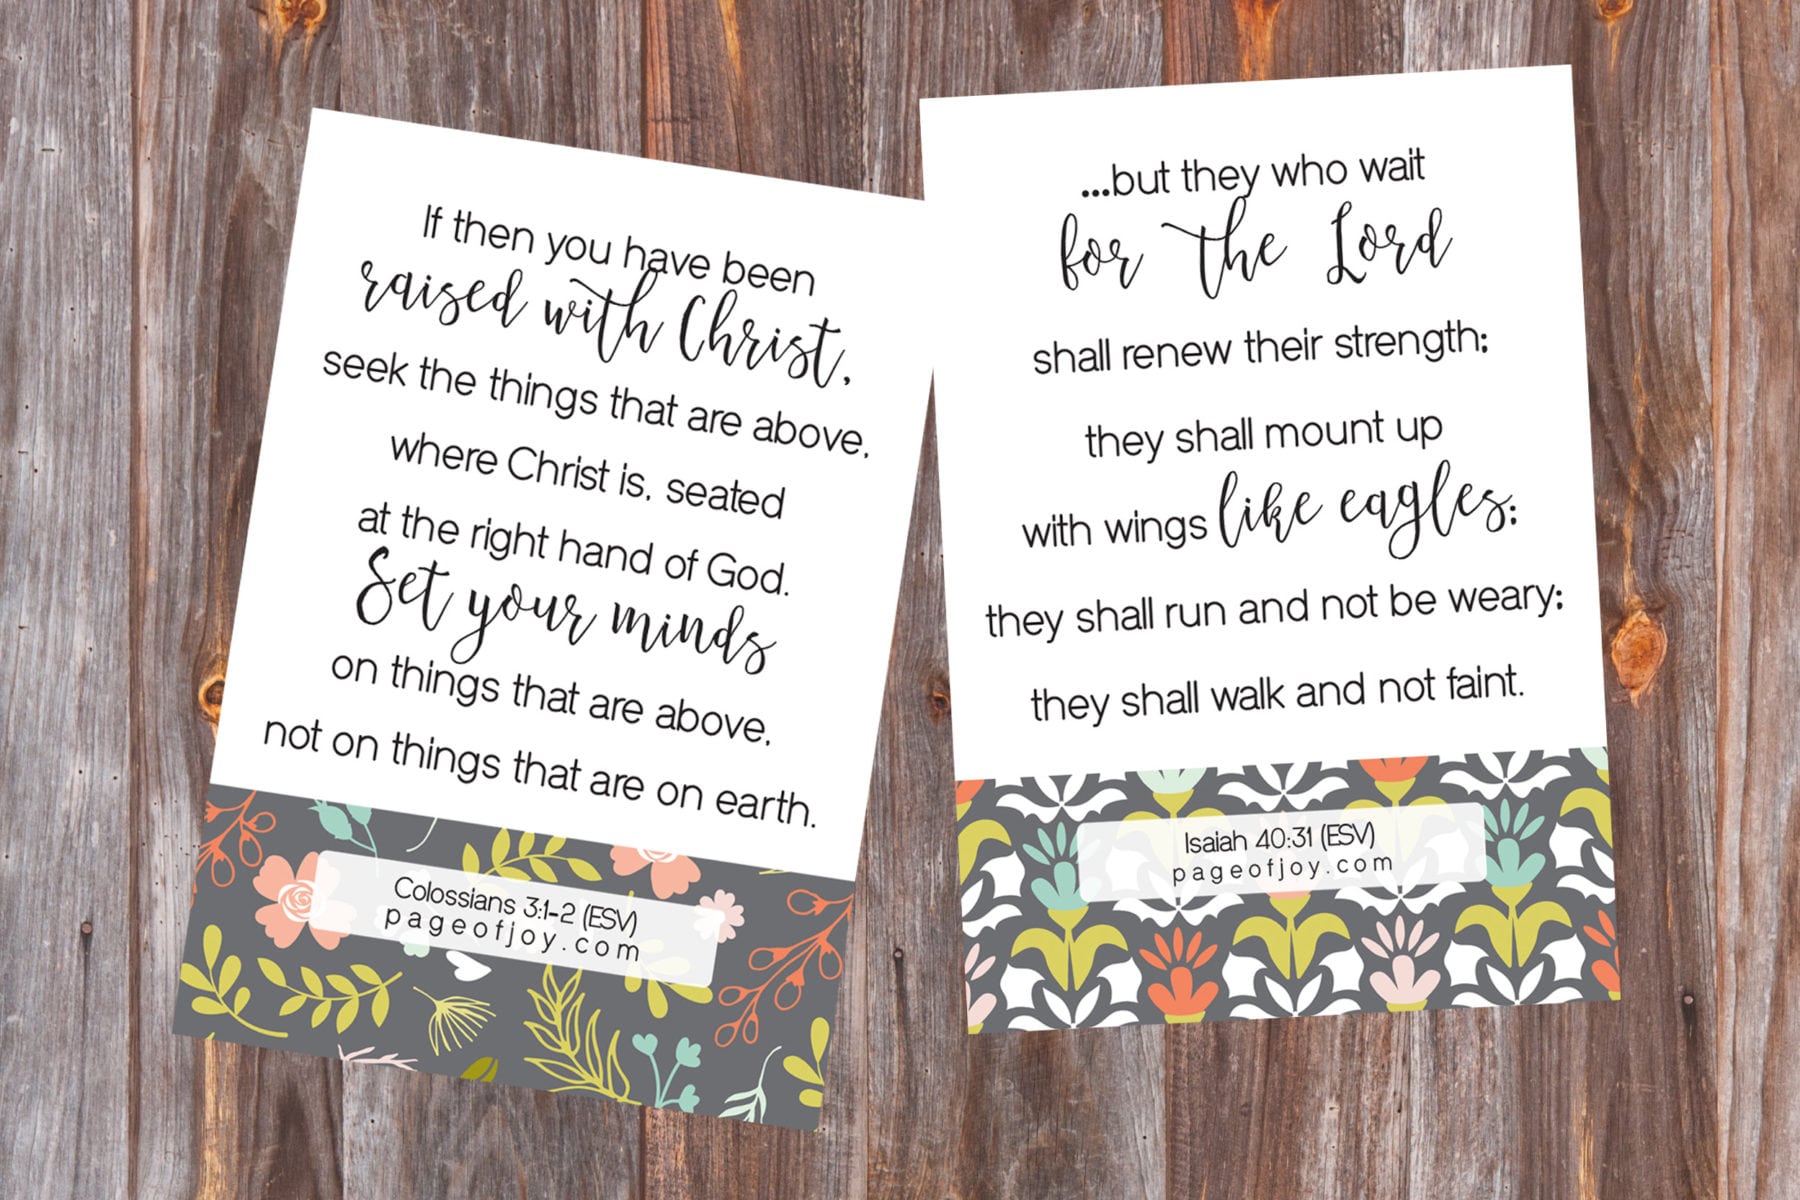 If then you have been
raised with Christ,
seek the things that are above,
where Christ is, seated
at the right hand of God.
Set your minds
on things that are above,
not on things that are on earth.
Colossians 3:1-2 (ESV)
pageofjoy.com
...but they who wait
for the Lord
shall renew their strength;
they shall mount up
with wings like eagles;
they shall run and not be weary;
they shall walk and not faint.
Isaiah 40:31 (ESV)
pageofjoy.com